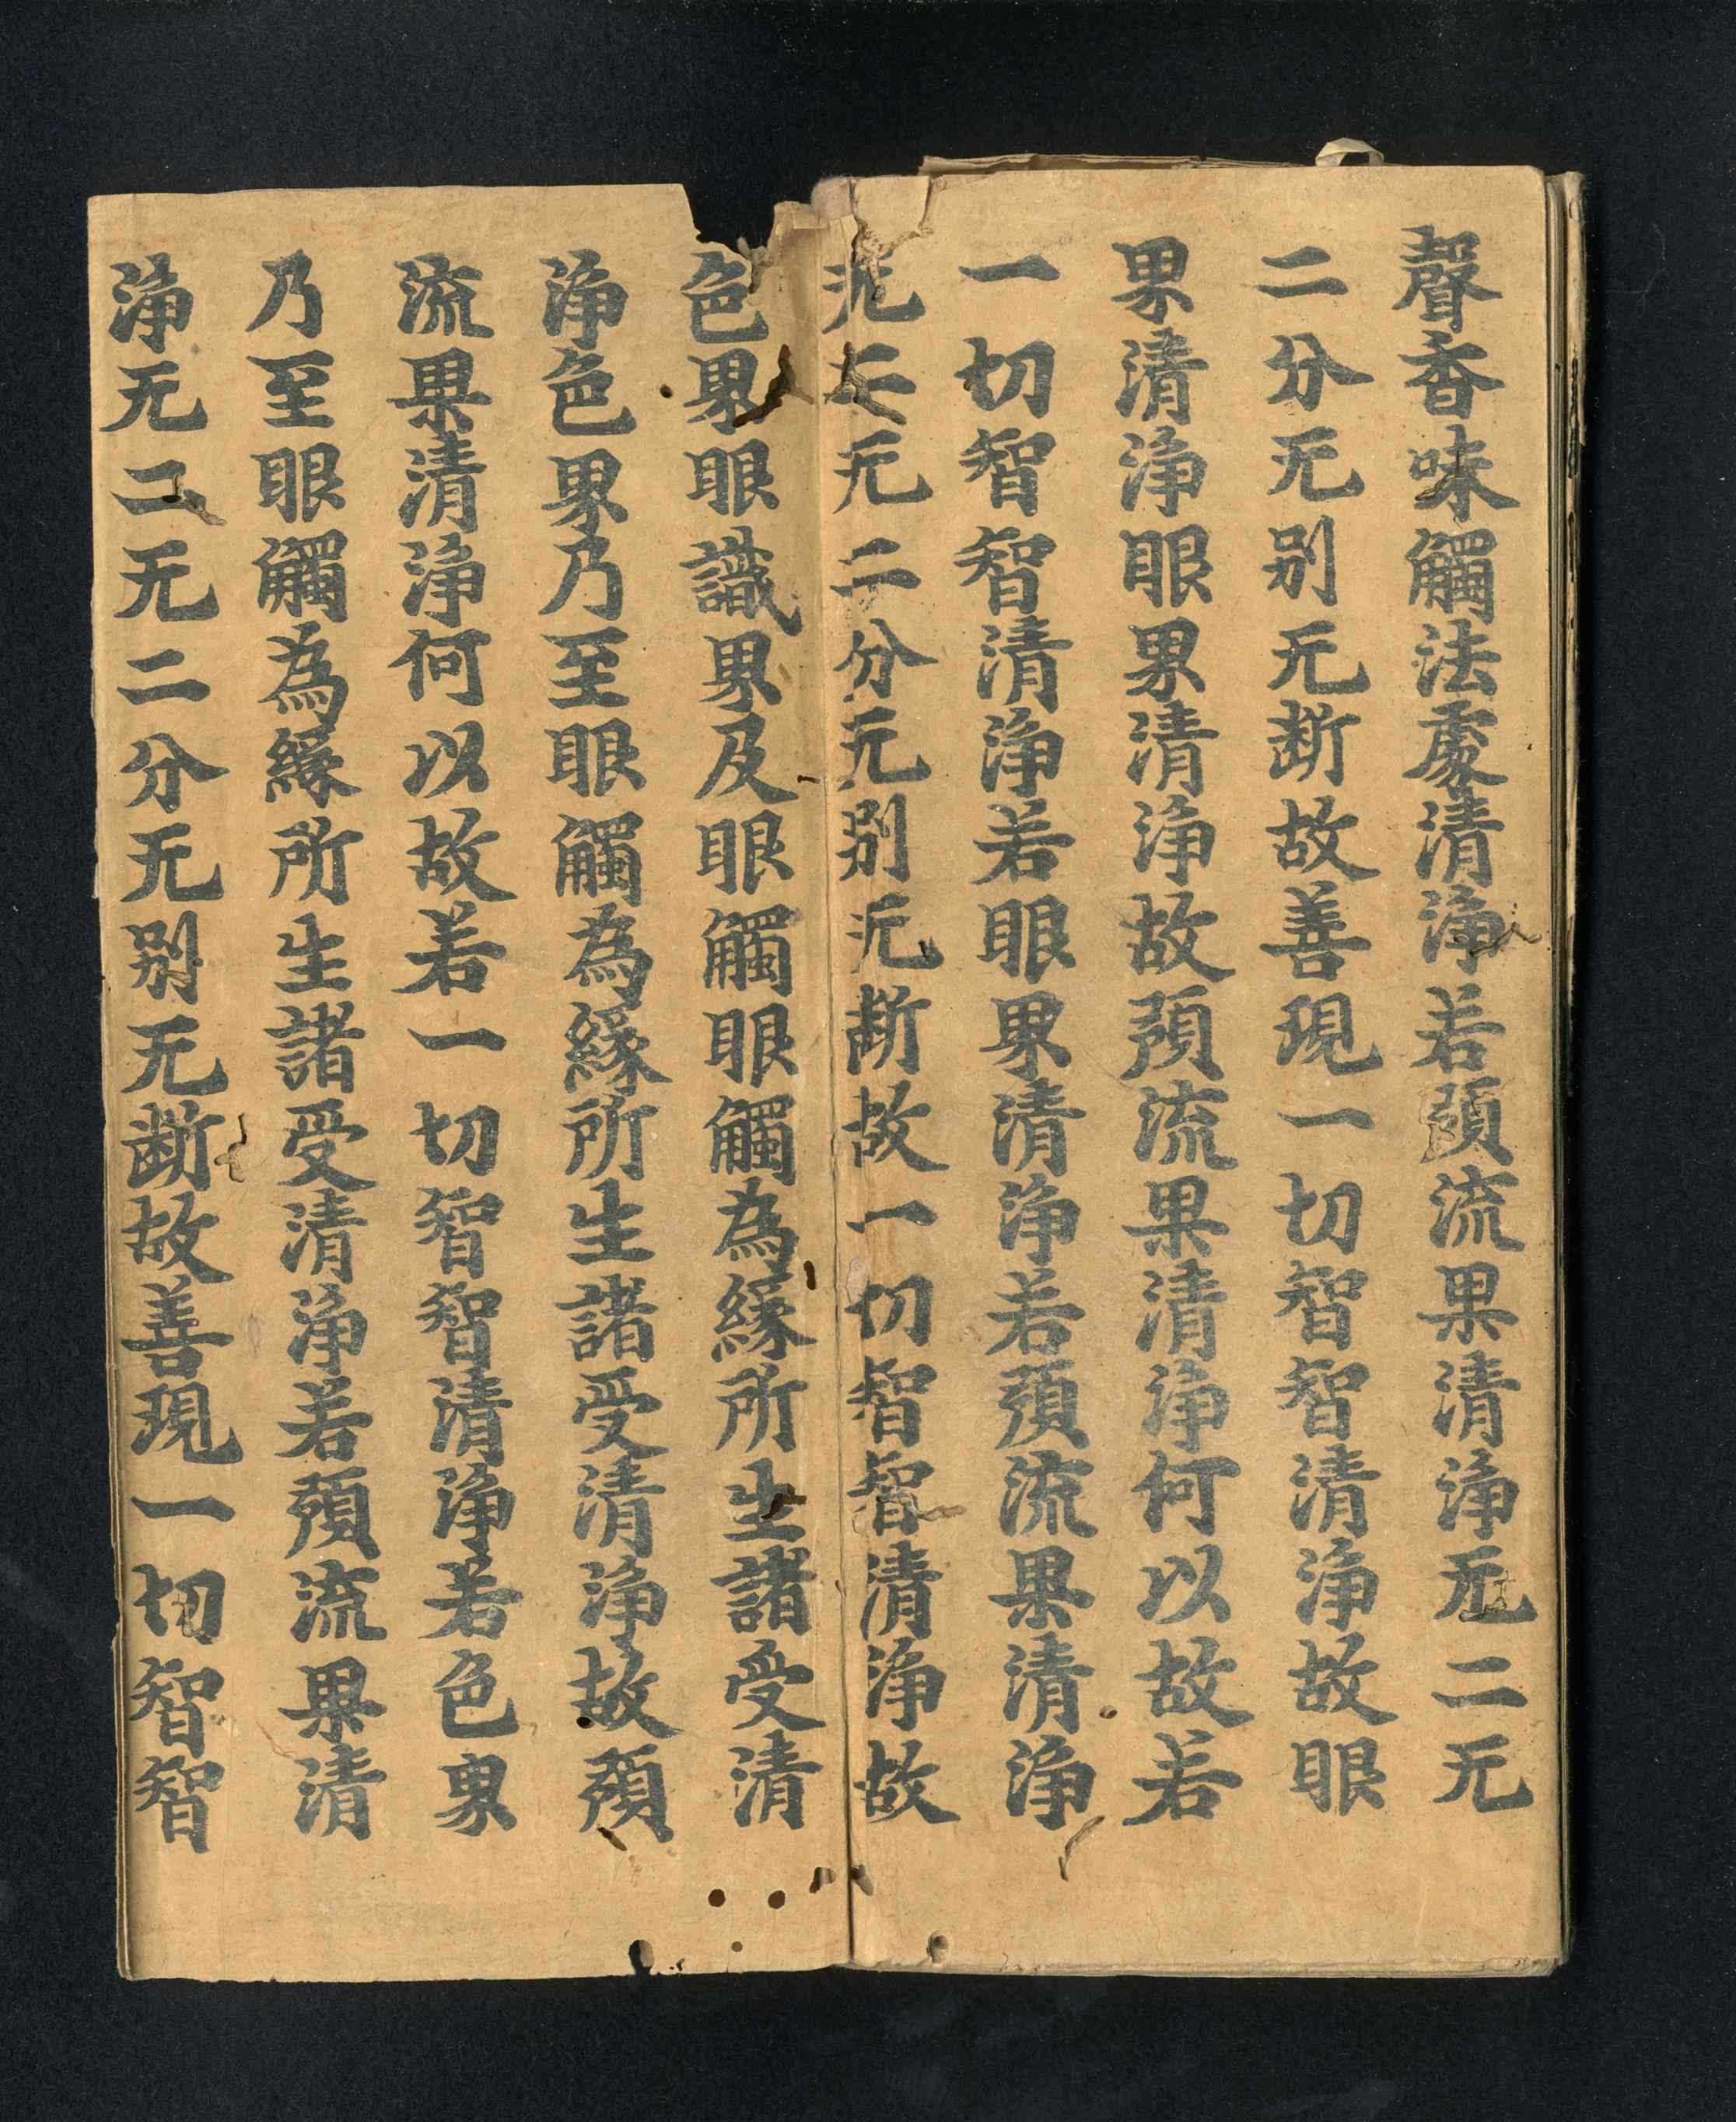 聲香味觸法處清淨若預流果清淨无二无
二分无别无斷故善現一切智智清淨故眼
界清淨眼界清淨故預流果清淨何以故若
一切智智清淨若眼界清淨若預流果清淨
无二无二分无别无斷故一切智智清淨故
色界眼識界及眼觸眼觸為緣所生諸受清
淨色界乃至眼觸為緣所生諸受清淨故預
流果清淨何以故若一切智智清淨若色界
乃至眼觸為緣所生諸受清淨若預流果清
淨无二无二分无别无斷故善現一切智智